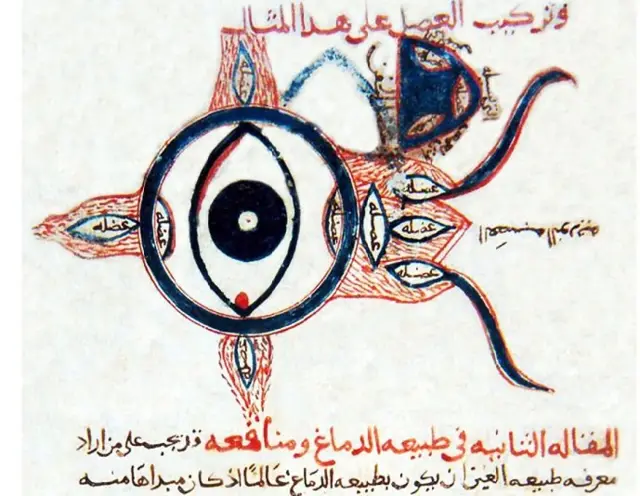 وتركيب العضل على هذا المثال
عضله
عضله
عضله
عضله
عضله
عضله
عضله
عضله
المقاله الثانيه في طبيعه الدماغ ومنافعه قد يجب على من اراد
معرفه طبيعه العين ان يكون بطبيعه الدماغ عالمًا اذ كان مبداها منه